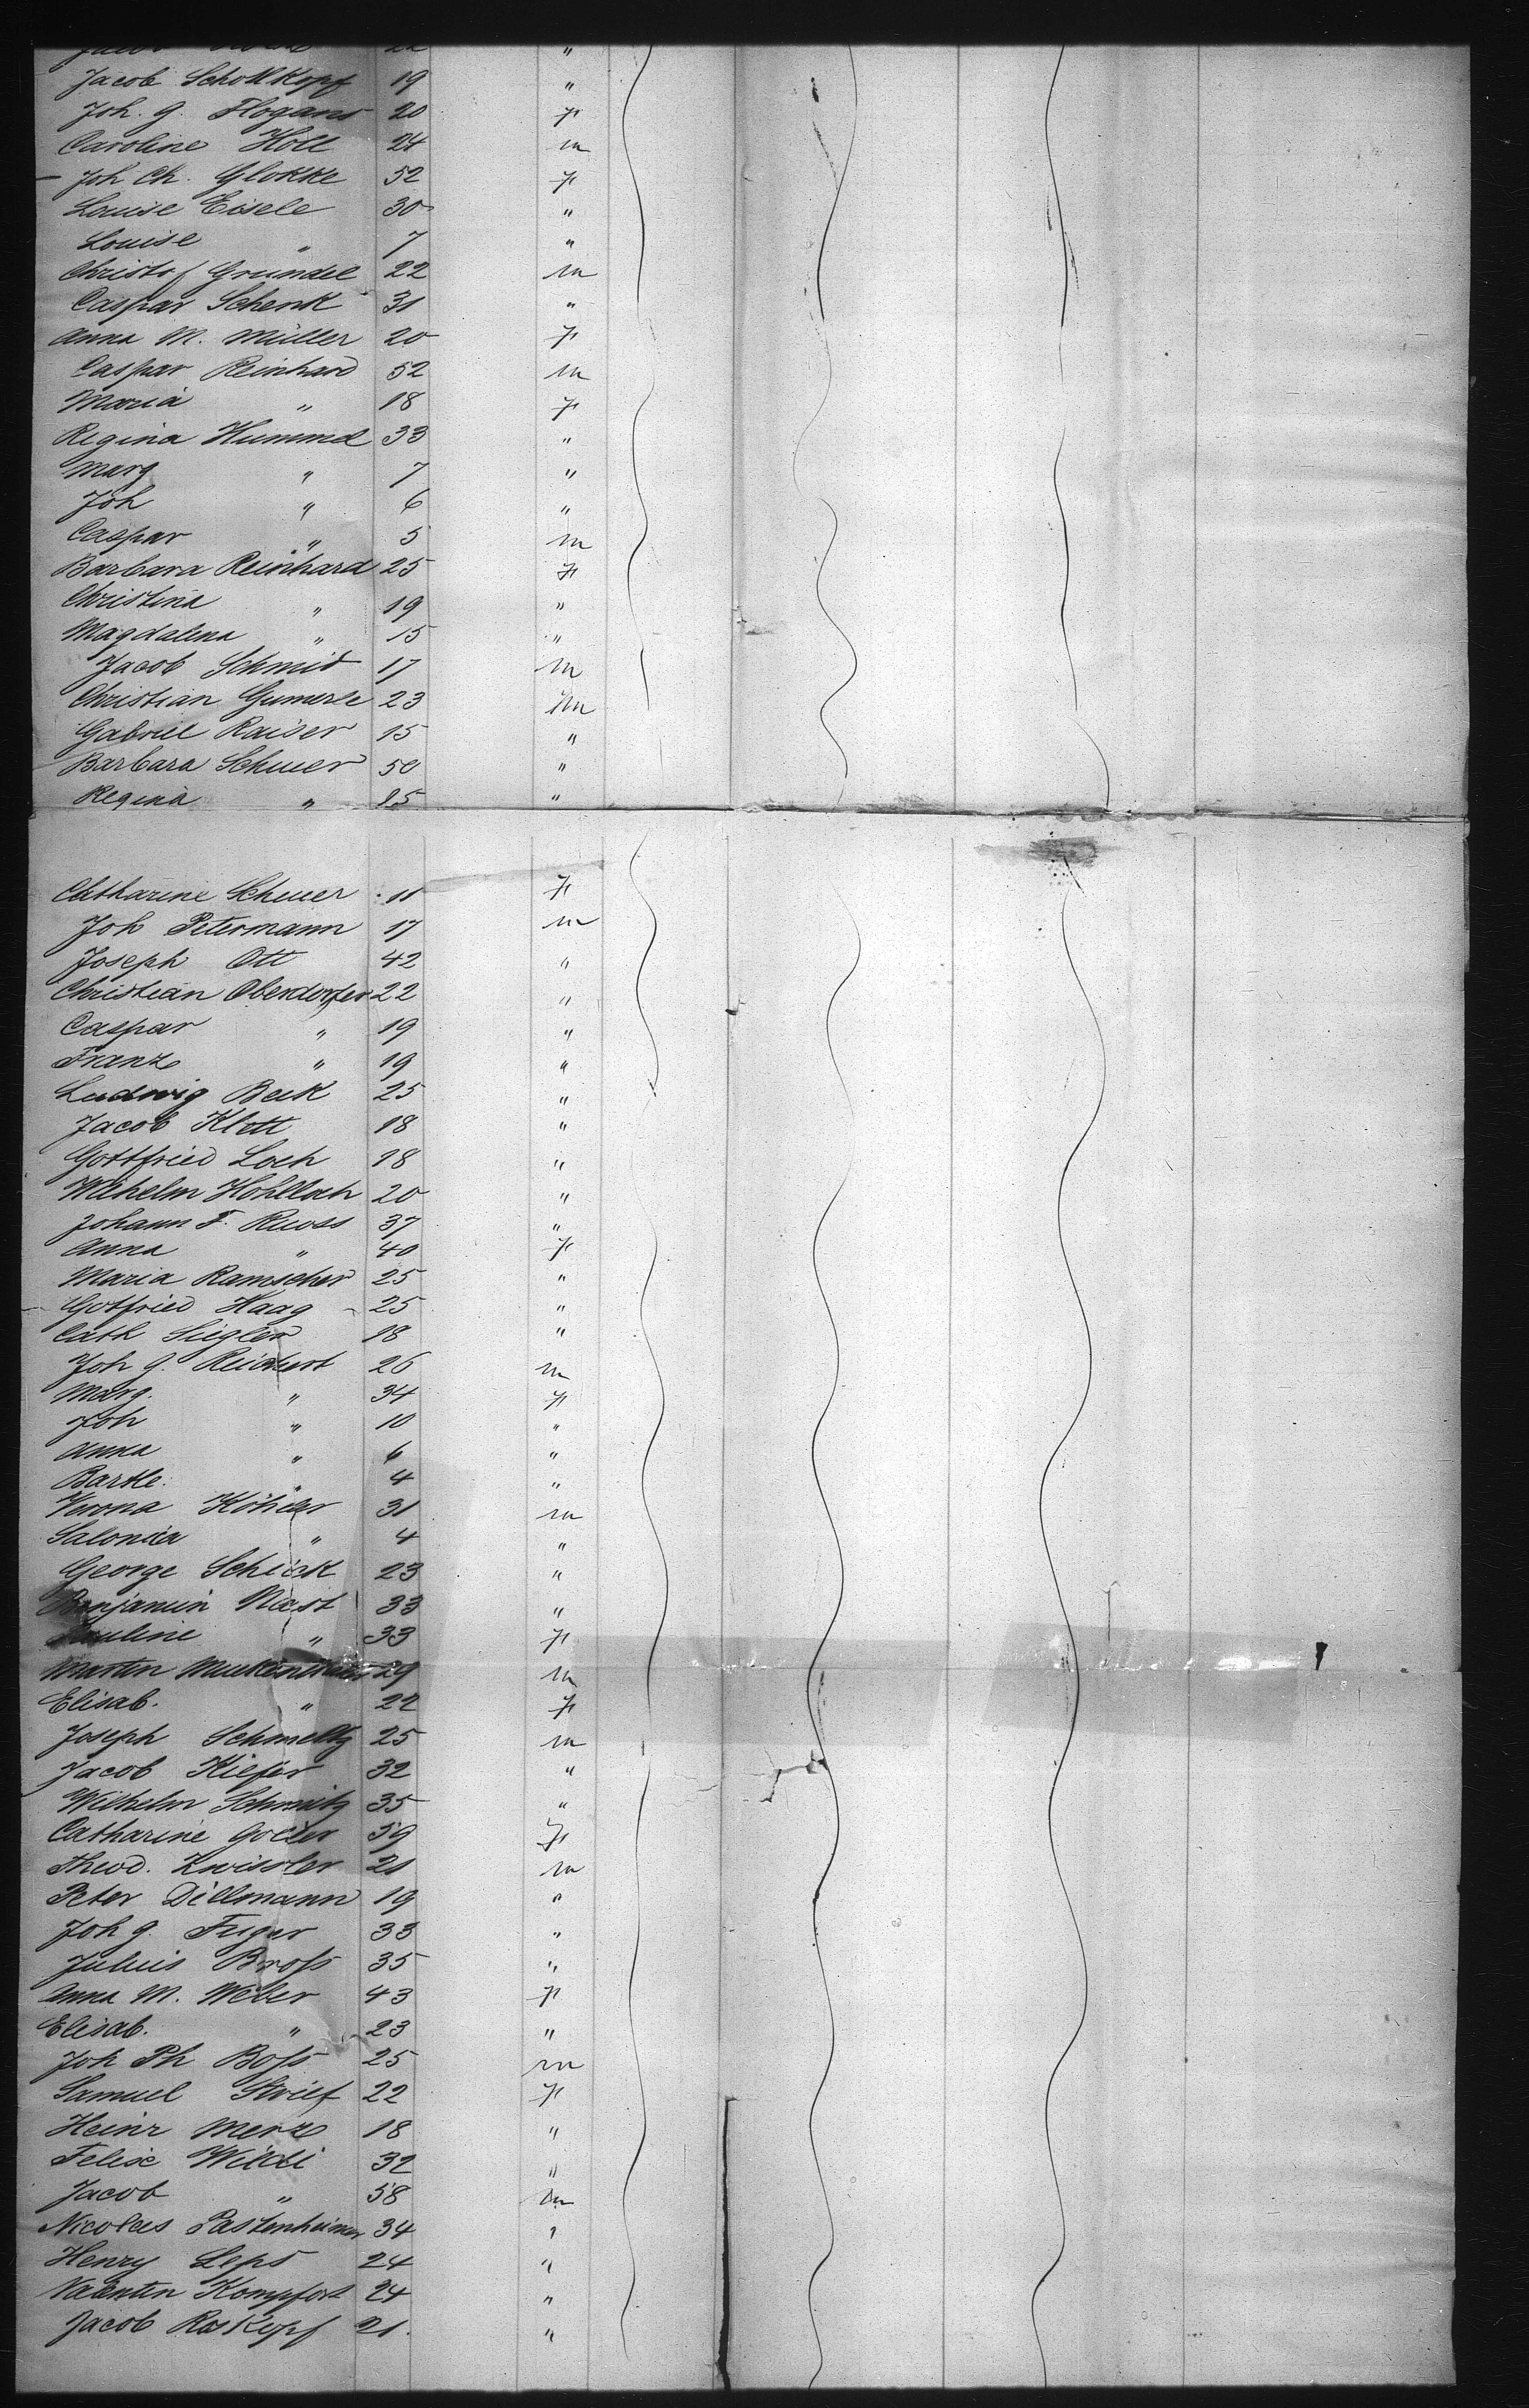 Jacob 22 "
Jacob Schollkopf 19 "
Joh. G. Hogans 20 f
Caroline Holl 24 m
Joh Ch. Glokke 52 f
Louise Eisele 30 "
Louise " 7 "
Christof Grundel 22 m
Caspar Schenk 31 "
Anna M. Müller 20 f
Caspar Reinhard 52 m
Maria " 18 f
Regina Hummel 33 "
Marg " 7 "
Joh " 6 "
Caspar " 5 m
Barbara Reinhard 25 f
Christina " 19 "
Magdalena " 15 "
Jacob Schmid 17 m
Christian Gumerle 23 m
Gabriel Raiser 15 "
Barbara Scheuer 50 "
Regina " 15 "
Catharine Scheuer 11 f
Joh Petermann 17 m
Joseph Ott 42 "
Christian Oberdorfer 22 "
Caspar " 19 "
Franz " 19 "
Ludwig Beck 25 "
Jacob Klett 18 "
Gottfried Loch 18 "
Wilhelm Hohlloch 20 "
Johann F. Ruoss 37 "
Anna " 40 f
Maria Ramscher 25 "
Gotfried Haag 25 "
Cath Siegler 18 "
Joh G. Reichert 26 m
Marg. " 34 f
Joh " 10 "
Anna " 6 "
Bartle. " 4 "
Verona Köhler 31 m
Salonia " 4 "
George Schick 23 "
Benjamin Nast 33 "
Pauline " 33 f
Martin 29 m
Elisab. " 22 f
Joseph Schmeltz 25 m
Jacob Kiefer 32 "
Wilhelm Schmitz 35 "
Catharine Goller 59 f
Theod. Zwissler 21 m
Peter Dillmann 19 "
Joh G. Fuger 33 "
Julius Bross 35 "
Anna M. Weber 43 f
Elisab. " 23 "
Joh Ph Boss 25 m
Samuel Strief 22 f
Heinr Merz 18 "
Felix Wildi 32 "
Jacob " 58 m
Nicolas Pastenheimer 34 "
Henry Leps 24 "
Valentin Kompfort 24 "
Jacob Roskopf 21. "